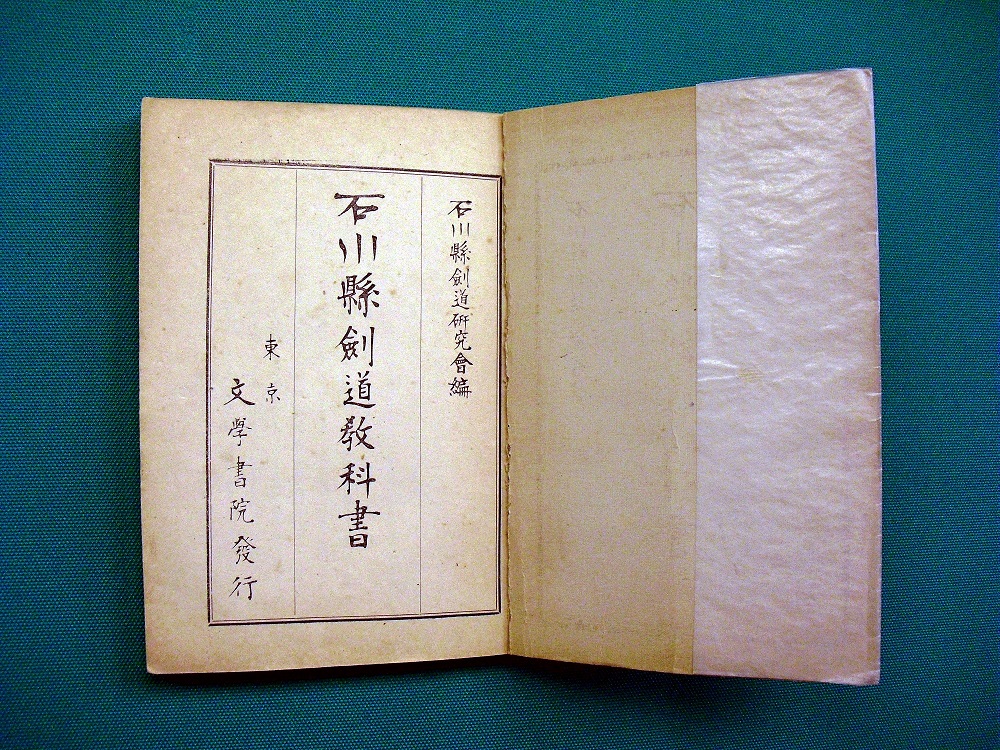 石川縣劍道研究會編
石川縣劍道敎科書
東京
文學書院發行